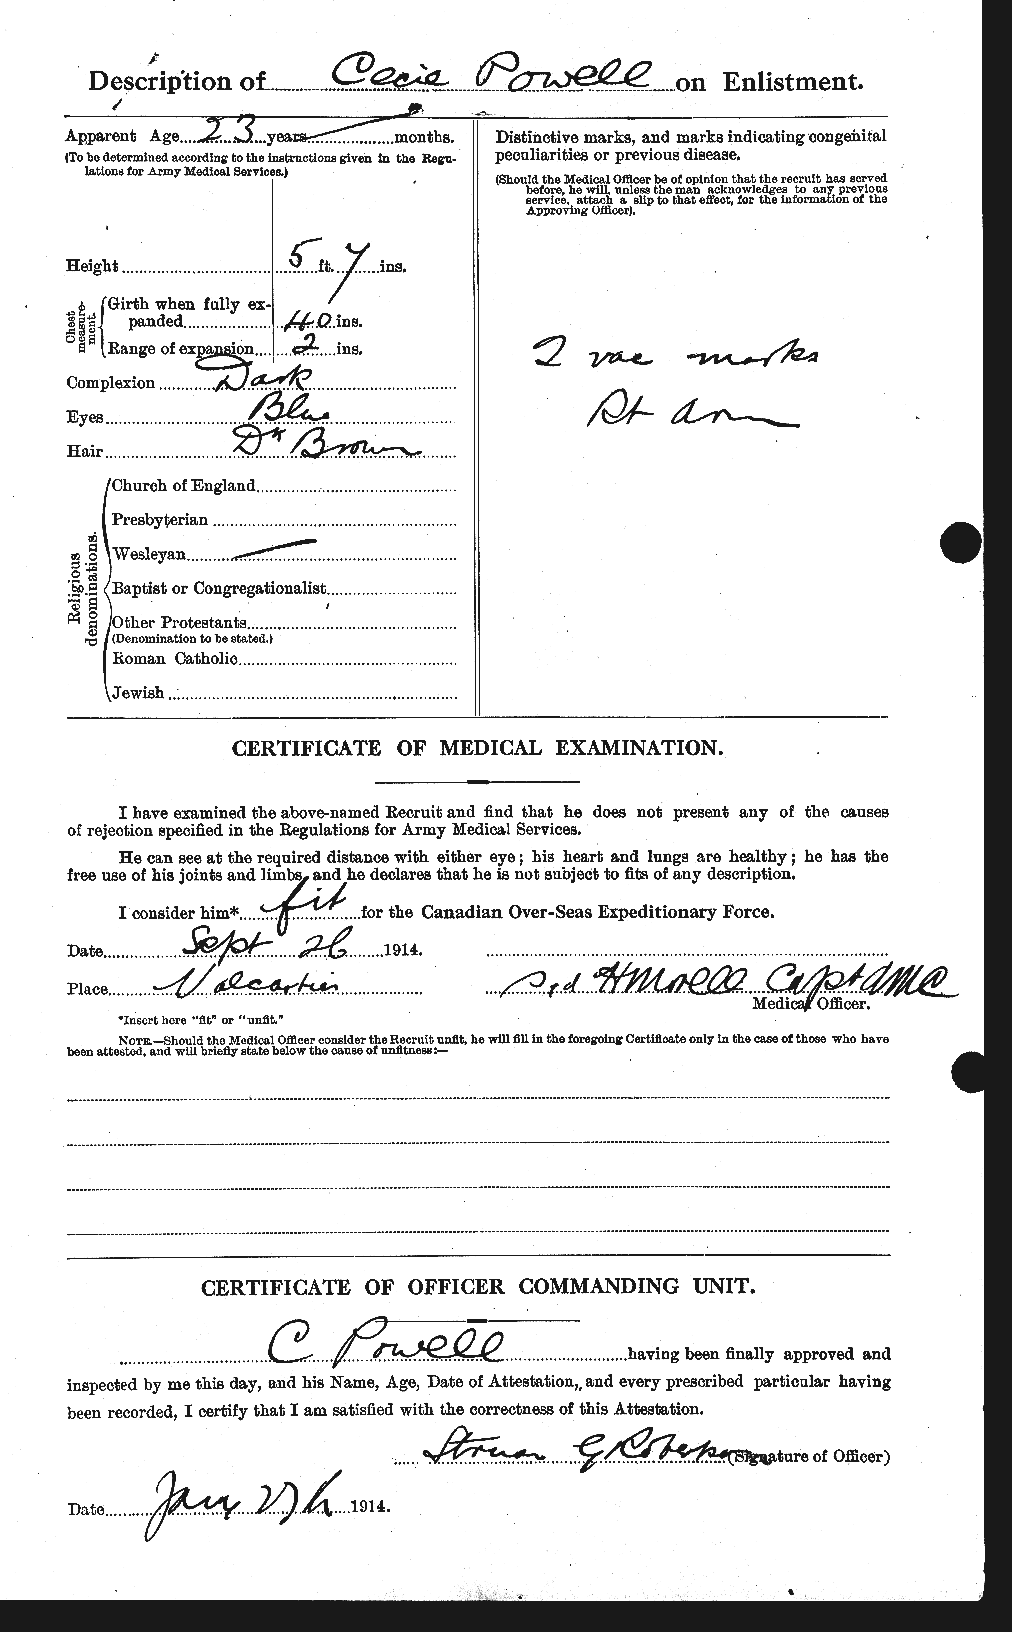 Description of Cecie Powell on Enlistment.
Apparent Age 23 years months.
(To be determined according to the instructions given in the Regu-
lations for Army Medical Services.)
Height 5 ft. 7 ins.
Chest measure-ment.
Girth when fully ex-
panded 40 ins.
Range of expansion 2 ins.
Complexion Dark
Eyes Blue
Hair Dk Brown
Religious denominations.
Church of England
Presbyterian
Wesleyan
Baptist or Congregationalist
Other Protestants
(Denomination to be stated.)
Roman Catholic
Jewish
Distinctive marks, and marks indicating congenital
peculiarities or previous disease.
(Should the Medical Officer be of opinion that the recruit has served
before, he will, unless the man acknowledges to any previous
service, attach a slip to that effect, for the information of the
Approving Officer).
2 vac marks
Rt arm
CERTIFICATE OF MEDICAL EXAMINATION.
I have examined the above-named Recruit and find that he does not present any of the causes
of rejection specified in the Regulations for Army Medical Services.
He can see at the required distance with either eye; his heart and lungs are healthy; he has the
free use of his joints and limbs, and he declares that he is not subject to fits of any description.
I consider him* fit for the Canadian Over-Seas Expeditionary Force.
Date Sept 26 1914.
Place Valcartier
Sgd Capt AMC
Medical Officer.
*Insert here "fit" or "unfit."
NOTE.—Should the Medical Officer consider the Recruit unfit, he will fill in the foregoing Certificate only in the case of those who have
been attested, and will briefly state below the cause of unfitness:—
CERTIFICATE OF OFFICER COMMANDING UNIT.
C Powell having been finally approved and
inspected by me this day, and his Name, Age, Date of Attestation, and every prescribed particular having
been recorded, I certify that I am satisfied with the correctness of this Attestation.
Struan G Robertson (Signature of Officer)
Date 1914.